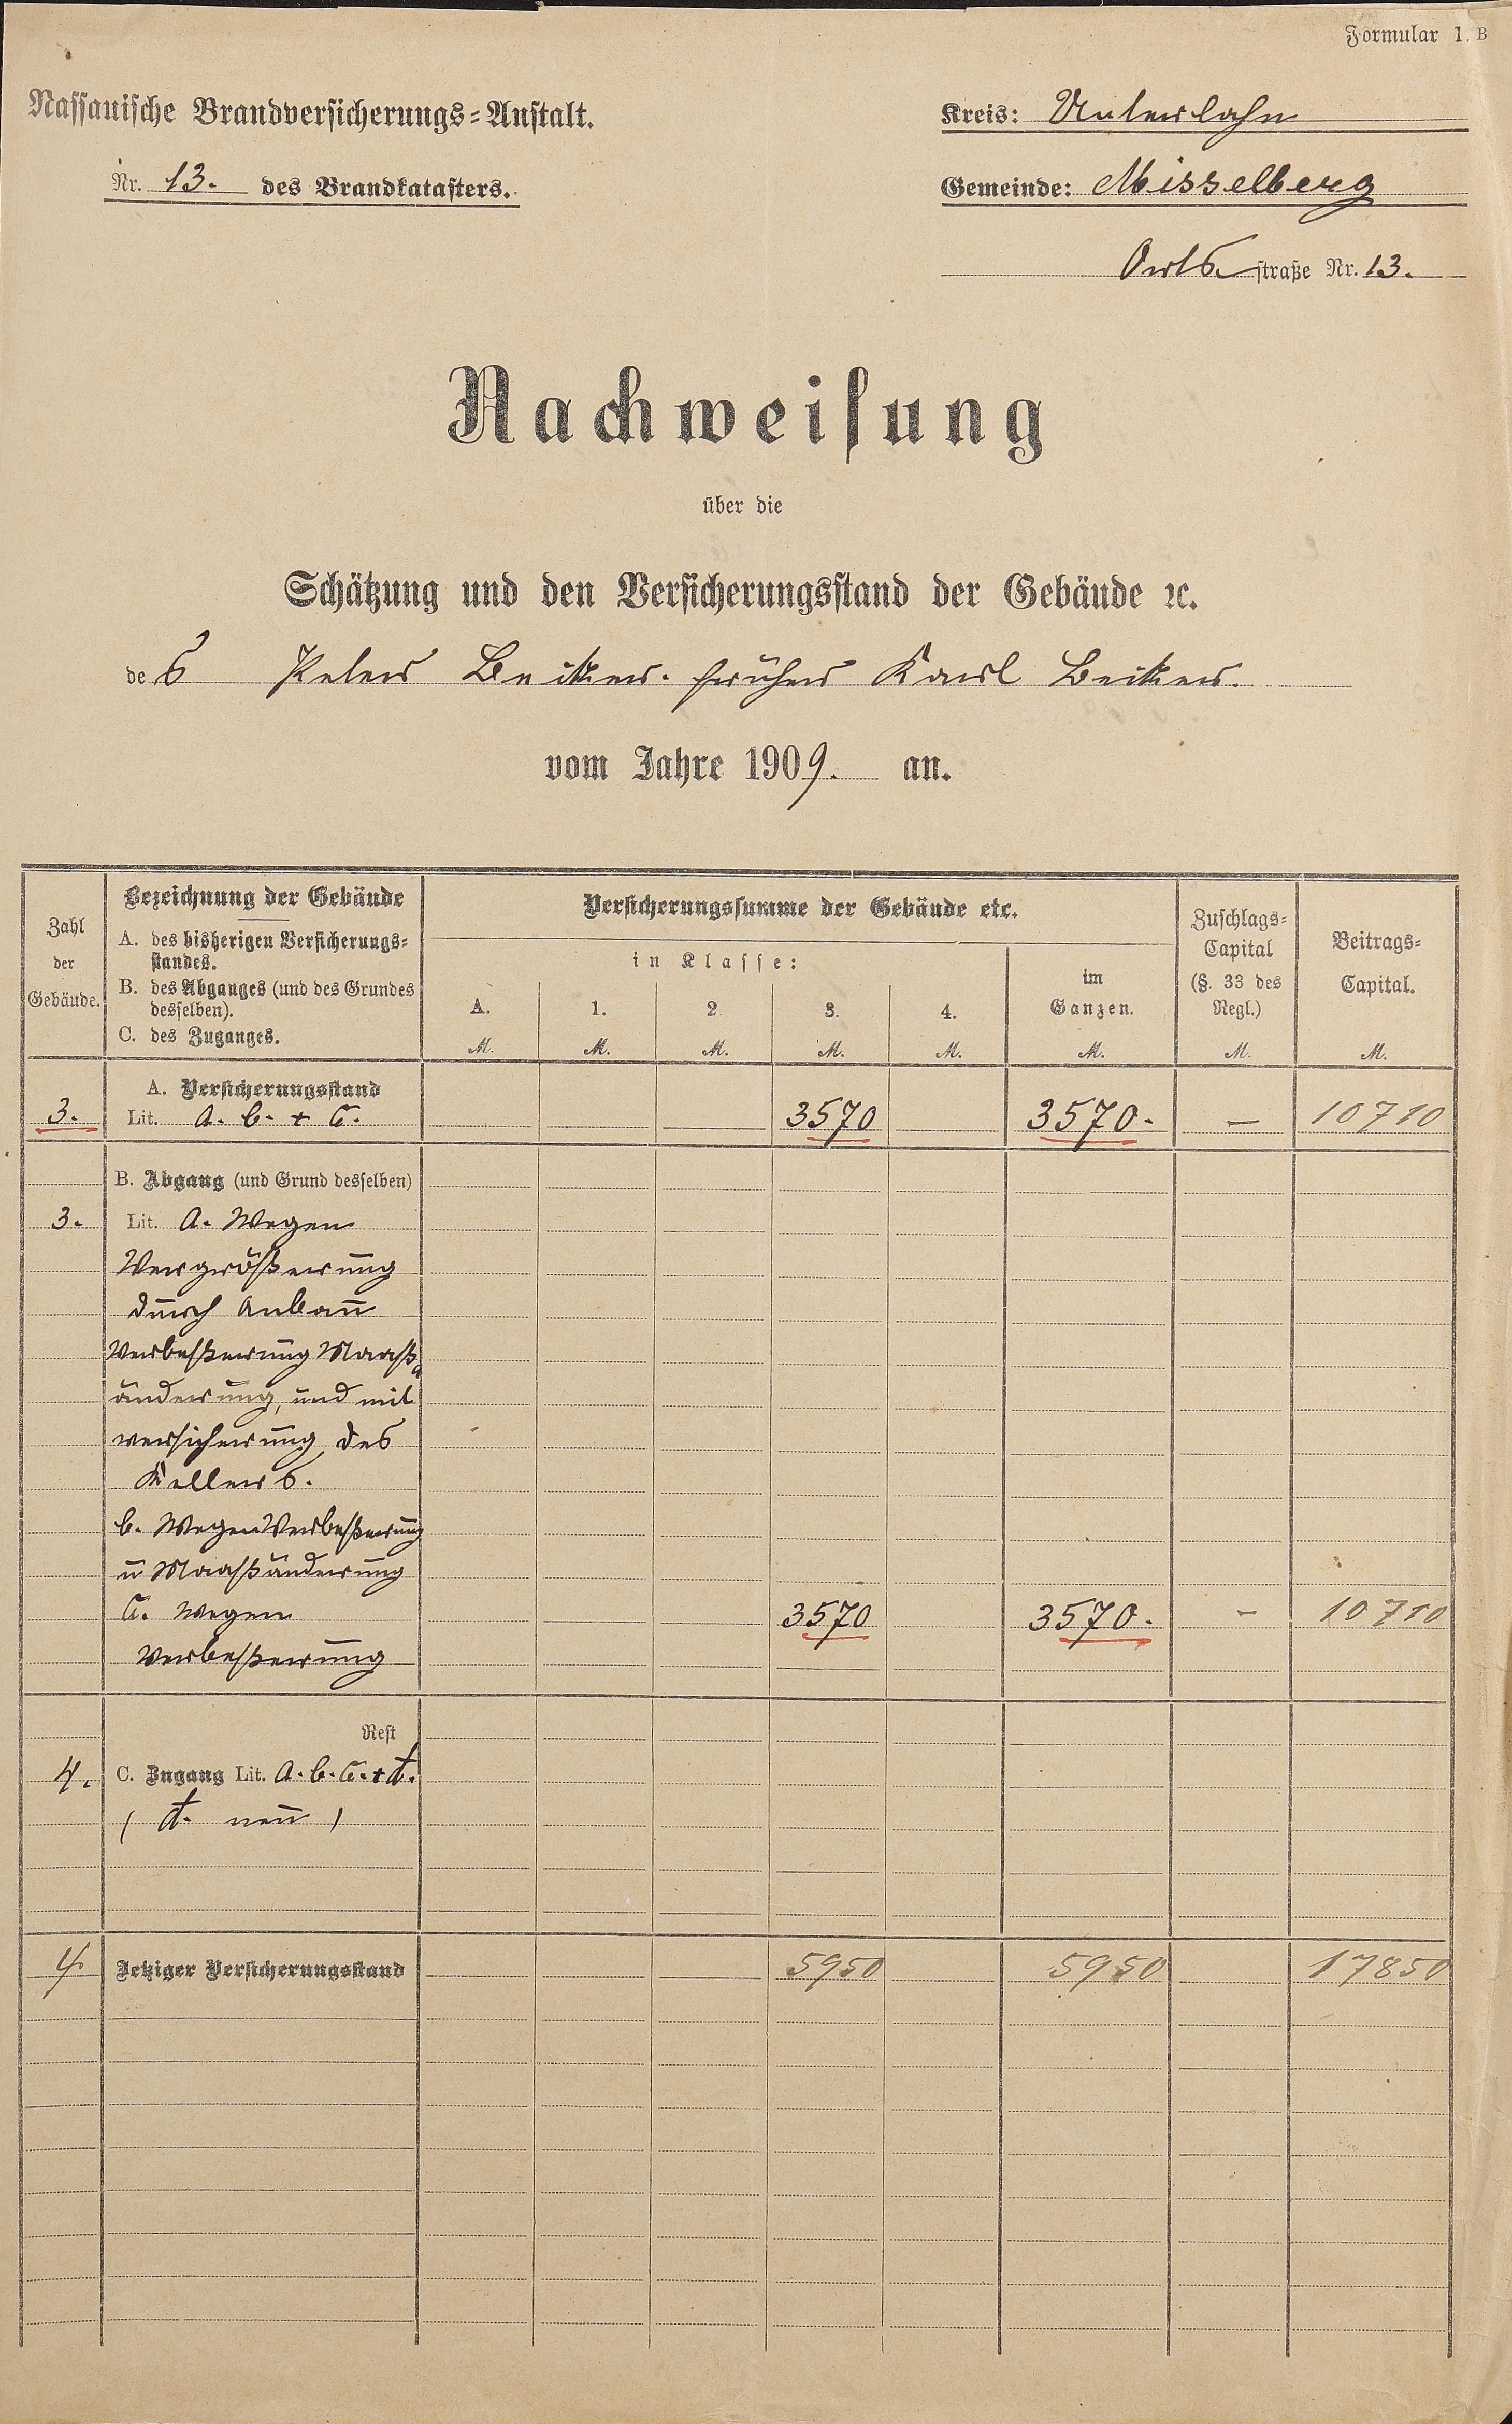 Formular 1. B
Nassauische Brandversicherungs=Anstalt.
Nr. 13. des Brandkatasters.
Kreis: Unterlahn
Gemeinde: Misselberg
Orts straße Nr. 13.
Nachweisung
über die
Schätzung und den Versicherungsstand der Gebäude ꝛc.
des Peter früher Karl
vom Jahre 1909. an.
Zahl der Gebäude.
Bezeichnung der Gebäude
A. des bisherigen Versicherungs=
standes.
B. des Abganges (und des Grundes
desselben).
C. des Zuganges.
Versicherungssumme der Gebäude etc.
in Klasse:
A. 1. 2. 3. 4.
im Ganzen.
Zuschlags=
Capital
(§. 33 des
Regl.)
Beitrags=
Capital.
M. M. M. M. M. M. M. M.
A. Versicherungsstand
3. Lit. a. b. + c. 3570 3570. — 10710
B. Abgang (und Grund desselben)
3. Lit. a. Wegen
Vergrößerung
durch Anbau
Verbeßerung Maaß
änderung, und mit
versicherung des
Kellers.
b. Wegen Verbeßerung
u Maaßänderung
c. wegen 3570 3570. — 10710
Verbeßerung
Rest
4. C. Zugang Lit. a. b. c. + d.
( d. neu )
4. Jetziger Versicherungsstand 5950 5950 17850